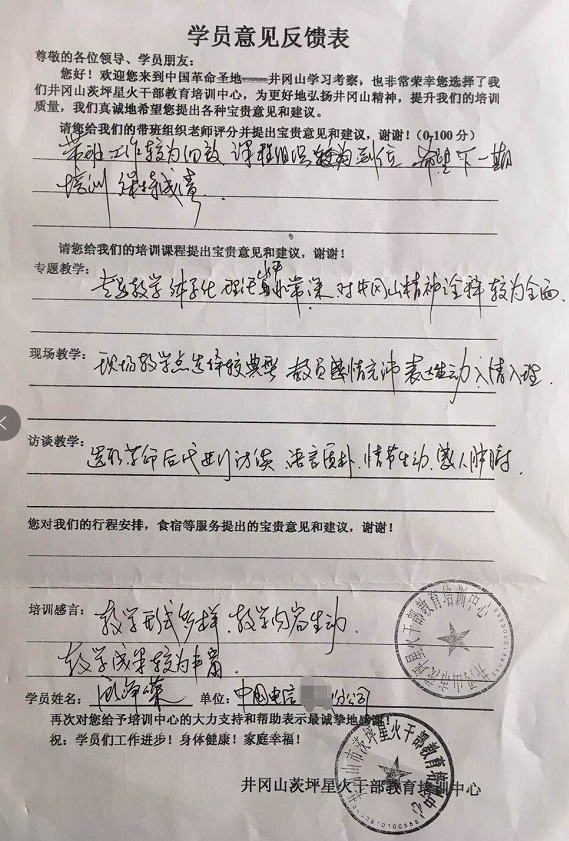 学员意见反馈表
尊敬的各位领导、学员朋友:
您好!欢迎您来到中国革命圣地——井冈山学习考察,也非常荣幸您选择了我
们井冈山茨坪星火干部教育培训中心,为更好地弘扬井冈山精神,提升我们的培训
质量,我们真诚地希望您提出各种宝贵意见和建议。
请您给我们的带班组织老师评分并提出宝贵意见和建议,谢谢!(0,100分)
带班工作较为细致 课程组织较为到位 希望下一期
培训
请您给我们的培训课程提出宝贵意见和建议,谢谢!
专题教学:专家教学体系化 理论水平非常深 对井冈山精神诠释较为全面.
现场教学:现场教学点选择较典型 教员感情充沛 表达生动 入情入理.
访谈教学:选取革命后代进行访谈 语言质朴.情节生动.感人肺腑.
您对我们的行程安排,食宿等服务提出的宝贵意见和建议,谢谢!
培训感言:教学形式多样.教学内容生动.
教学成果较为丰富
学员姓名: 单位:中国电信 分公司
再次对您给予培训中心的大力支持和帮助表示最诚挚地感谢!
祝:学员们工作进步!身体健康!家庭幸福!
井冈山茨坪星火干部教育培训中心
井冈山市茨坪星火干部教育培训中心
井冈山市茨坪星火干部教育培训中心